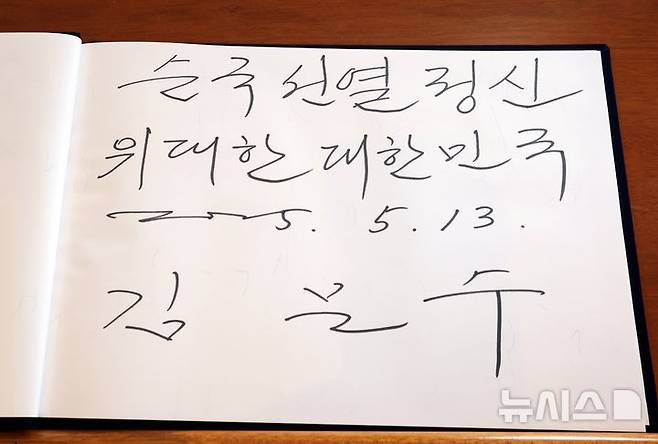 순국선열 정신
위대한 대한민국
2025. 5. 13.
김 문 수
뉴시스